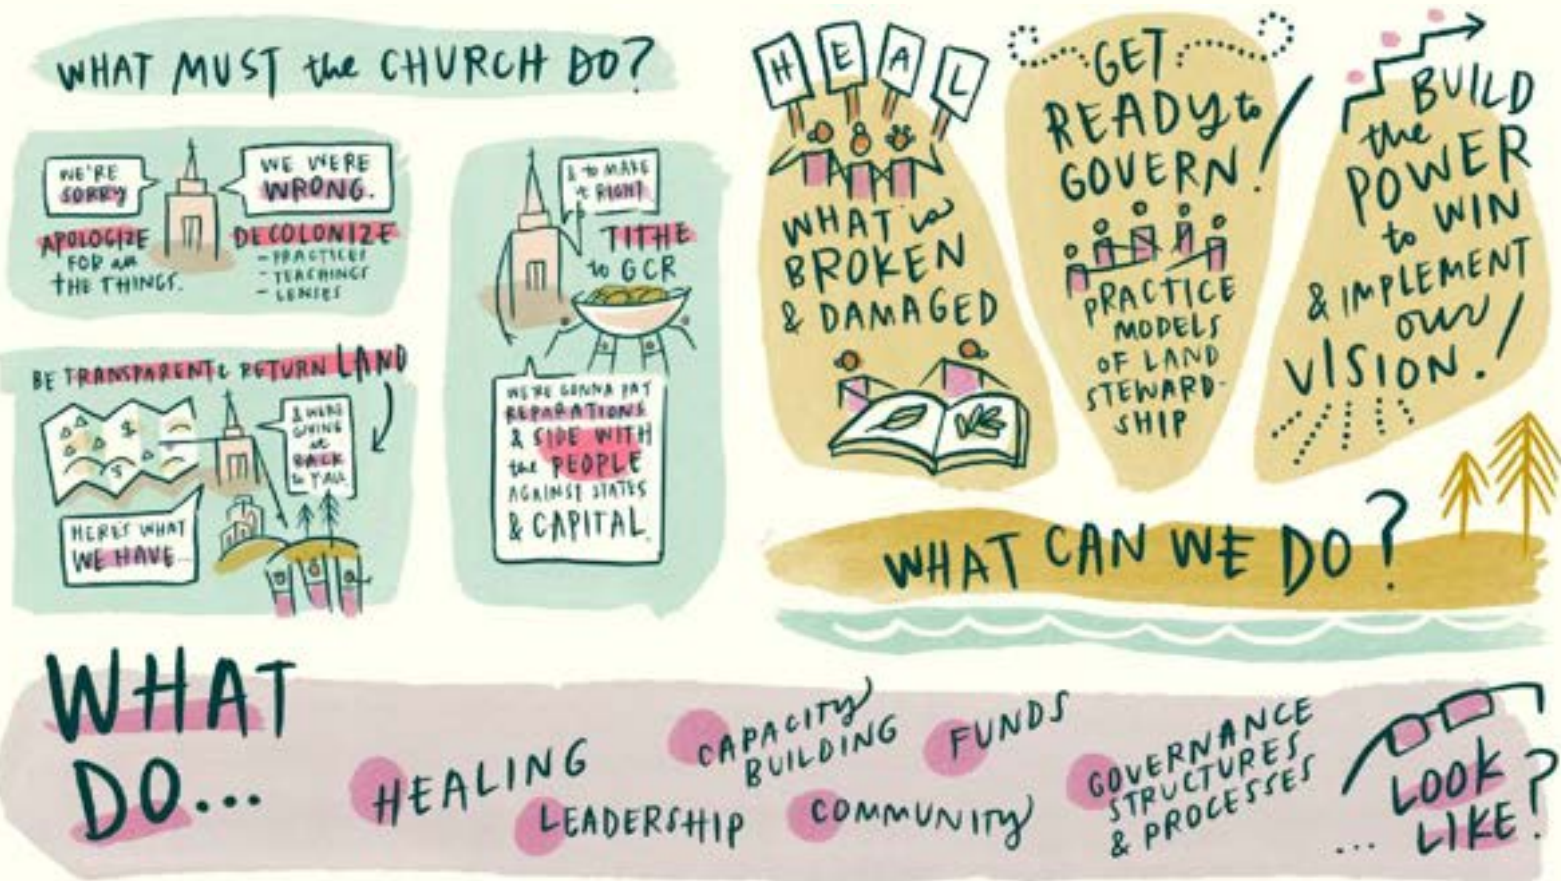 WHAT MUST the CHURCH DO?
WE'RE
SORRY
WE WERE
WRONG.
APOLOGIZE
FOR all
THE THINGS.
DECOLONIZE
- PRACTICES
- TEACHINGS
- LENSES
& to MAKE
it RIGHT
TITHE
to GCR
WE'RE GONNA PAY
REPARATIONS
& SIDE WITH
the PEOPLE
AGAINST STATES
& CAPITAL.
BE TRANSPARENT & RETURN LAND
& WE'RE
GIVING
it
BACK
to Y'ALL
HERE'S WHAT
WE HAVE...
HEAL
WHAT is
BROKEN
& DAMAGED
GET
READY to
GOVERN!
PRACTICE
MODELS
OF LAND
STEWARD-
SHIP
BUILD
the
POWER
to WIN
& IMPLEMENT
our
VISION!
WHAT CAN WE DO?
WHAT
DO...
HEALING
LEADERSHIP
CAPACITY
BUILDING
COMMUNITY
FUNDS
GOVERNANCE
STRUCTURES
& PROCESSES
... LOOK
LIKE?